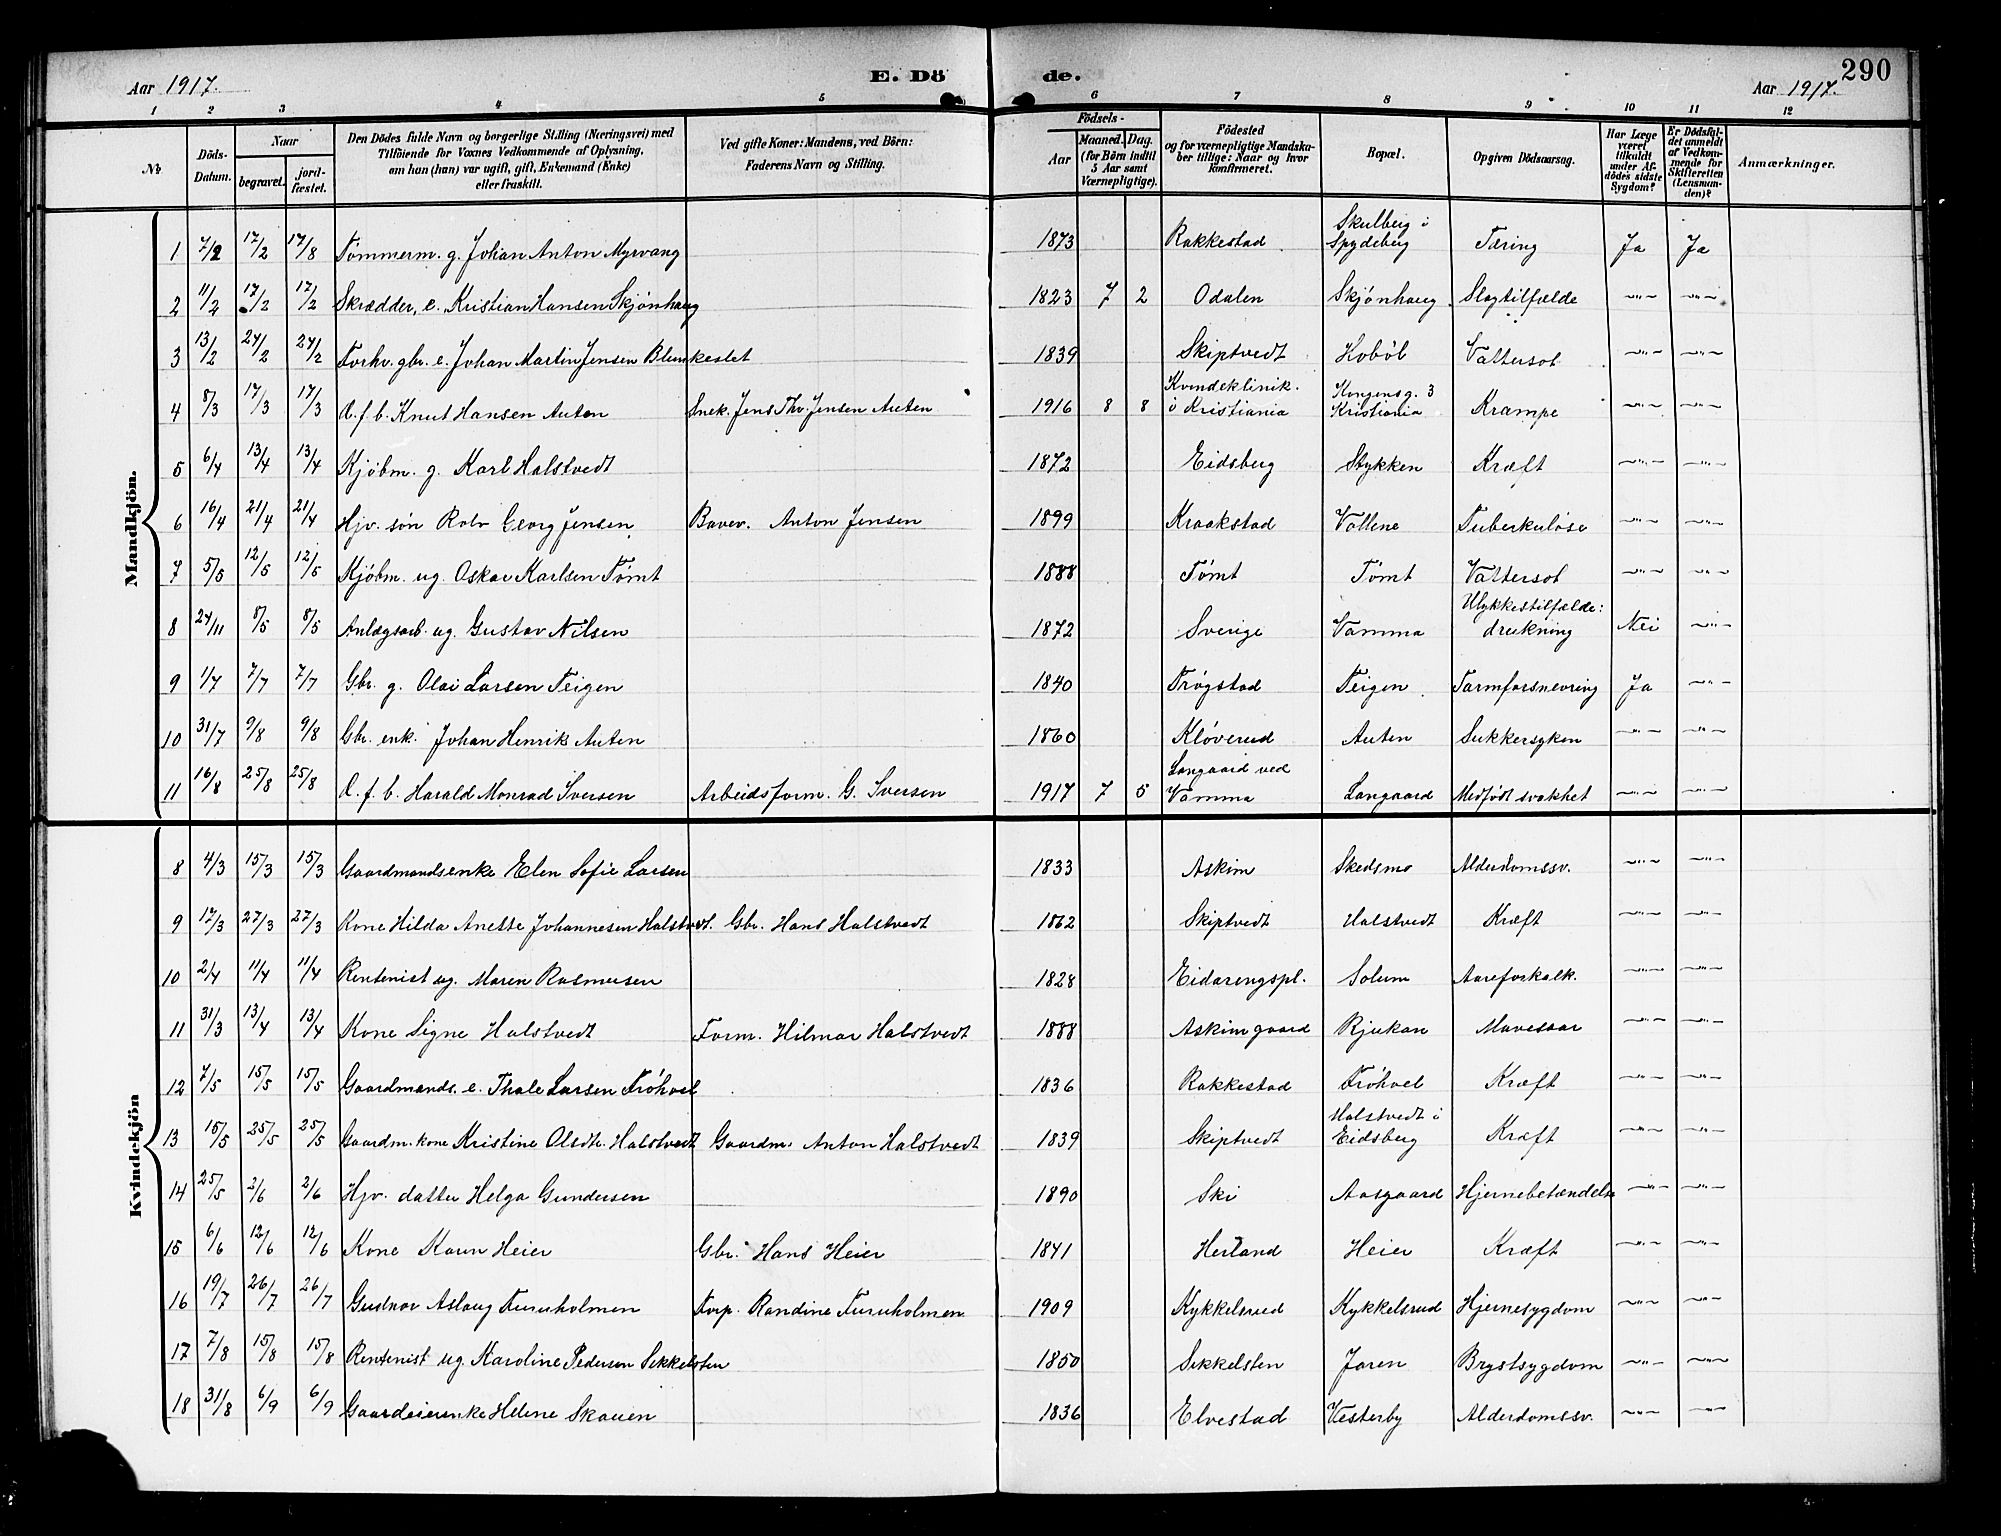 Aar 1917.
E. Dö de.
290
Aar 1917.
1 2 3 4 5 6 7 8 9 10 11 12
No
Döds-Datum.
Naar
begravet.
jordfæstet.
Den Dödes fulde Navn og borgerlige Stilling (Næringsvei) med
Tilföiende for Voxnes Vedkommende af Oplysning,
om han (hun) var ugift, gift, Enkemand (Enke)
eller fraskilt.
Ved gifte Koner: Mandens, ved Börn:
Faderens Navn og Stilling.
Födsels-
Aar
Maaned. Dag.
(for Börn indtil
5 Aar samt
Værnepligtige).
Födested
og for værnepligtige Mandskaber tillige: Naar og hvor
konfirmeret.
Bopæl.
Opgiven Dödsaarsag.
Har Læge
været
tilkaldt
under Afdödes sidste
Sygdom?
Er Dödsfaldet anmeldt
af Vedkommende for
Skifteretten
(Lensmanden)?
Anmærkninger.
Mandkjön.
1 7/2 17/2 17/8 Tømmerm. g. Johan Anton Myrvang 1873 Rakkestad Skulberg i Spydeberg Tæring Ja Ja
2 11/2 17/2 17/2 Skrædder, e. Kristian Hansen Skjønhaug 1823 7 2 Odalen Skjønhaug Slagtilfælde -"- -"-
3 13/2 24/2 24/2 Forhv. gbr. e. Johan Martin Jensen Blunkeslet 1839 Skiptvedt Hobøl Vattersot -"- -"-
4 8/3 17/3 17/3 U.f.b. Knut Hansen Auten Snek. Jens Thv. Jensen Auten 1916 8 8 Kvindeklinik. i Kristiania Kongensg. 3 Kristiania Krampe -"- -"-
5 6/4 13/4 13/4 Kjøbm. g. Karl Halstvedt 1872 Eidsberg Stykken Kræft -"- -"-
6 16/4 21/4 21/4 Hjv. søn Rolv Georg Jensen Banev. Anton Jensen 1899 Kraakstad Vollene Tuberkuløse -"- -"-
7 5/5 12/5 12/5 Kjøbm. ug. Oskar Karlsen Tømt 1888 Tømt Tømt Vattersot -"- -"-
8 24/11 8/5 8/5 Anlægsarb. ug. Gustav Nilsen 1872 Sverige Vamma Ulykkestilfælde: drukning Nei -"-
9 1/7 7/7 7/7 Gbr. g. Olai Larsen Teigen 1840 Trøgstad Teigen Tarmforsnevring Ja -"-
10 31/7 9/8 9/8 Gbr. enk. Johan Henrik Auten 1860 Kløverud Auten Sukkersyken -"- -"-
11 16/8 25/8 25/8 U.f.b. Harald Monrad Iversen Arbeidsform. G. Iversen 1917 7 5 Langaard ved Vamma Langaard Medfødt svakhet -"- -"-
Kvindekjön
8 4/3 15/3 15/3 Gaardmandsenke Elen Sofie Larsen 1833 Askim Skedsmo Alderdomssv. -"- -"-
9 17/3 27/3 27/3 Kone Hilda Anette Johannesen Halstvedt. Gbr. Hans Halstvedt 1862 Skiptvedt Halstvedt Kræft -"- -"-
10 2/4 11/4 11/4 Rentenist ug. Maren Rasmusen 1828 Eidarengspl. Solum Aareforkalk. -"- -"-
11 31/3 13/4 13/4 Kone Signe Halstvedt Form. Hilmar Halstvedt 1888 Askim gaard Rjukan Mavesaar -"- -"-
12 7/5 15/5 15/5 Gaardmands. e. Thale Larsen Frøhvel 1836 Rakkestad Frøhvel Kræft -"- -"-
13 15/5 25/5 25/5 Gaardm. kone Kristine Olsdtr. Halstvedt Gaardm. Anton Halstvedt 1839 Skiptvedt Halstvedt i Eidsberg Kræft -"- -"-
14 25/5 2/6 2/6 Hjv. datter Helga Gundersen 1890 Ski Aasgaard Hjernebetændelse -"- -"-
15 6/6 12/6 12/6 Kone Karen Heier Gbr. Hans Heier 1841 Herland Heier Kræft -"- -"-
16 19/7 26/7 26/7 Gudrov Aslaug Furuholmen Torp. Randine Furuholmen 1909 Kykkelsrud Kykkelsrud Hjernesygdom -"- -"-
17 7/8 15/8 15/8 Rentenist ug. Karoline Pedersen Sekkelsten 1850 Sekkelsten Jaren Brystsygdom -"- -"-
18 31/8 6/9 6/9 Gaardeierenke Helene Skauen 1836 Elvestad Vesterby Alderdomssv. -"- -"-